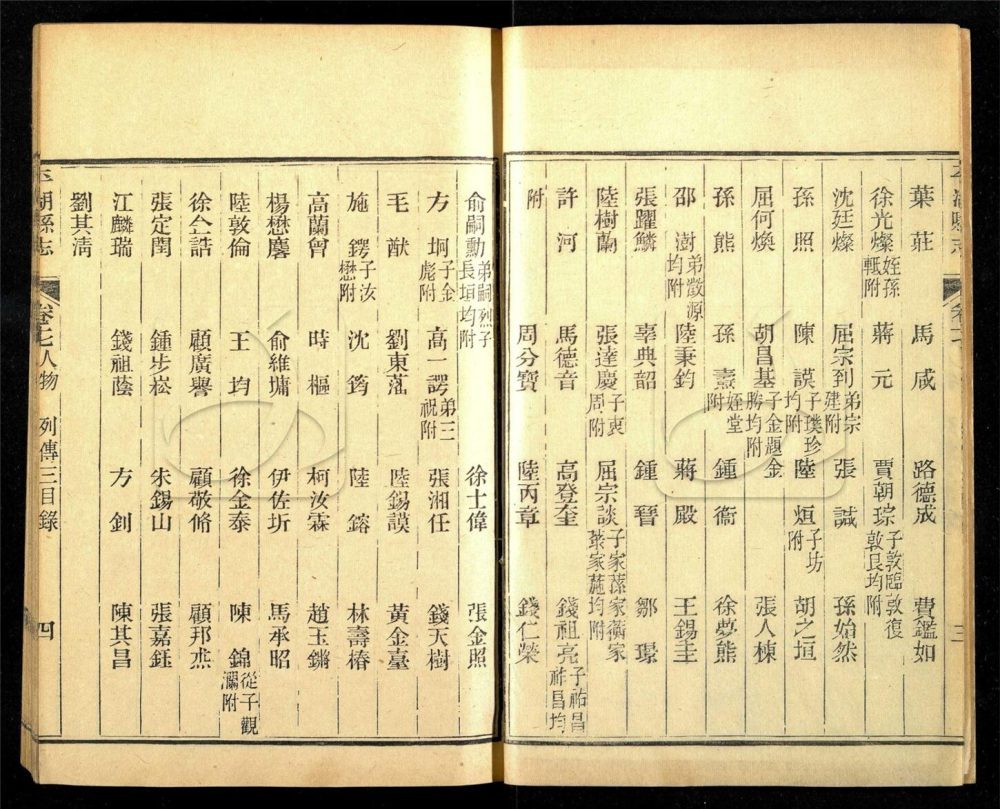 葉莊　馬咸　路德成　費鑑如
徐光燦姪孫軧附　蔣元　賈朝琮子敦臨敦復敦艮均附
沈廷燦　屈宗到弟宗建附　張諴　孫始然
孫照　陳謨子璞珍均附　陸烜子坊附　胡之垣
屈何煥　胡昌基子金題金勝均附　張人棟
孫熊　孫燾姪堂附　鍾衞　徐夢熊
邵澍弟澂源均附　陸秉鈞　蔣殿　王錫圭
張躍鱗　辜典韶　鍾晉　鄒璟
陸樹蘭　張達慶子衷周附　屈宗談子家蓀家蘅家蕖家葹均附
許河　馬德音　高登奎　錢祖亮子祐昌祚昌均
附　周分寶　陸丙章　錢仁榮
俞嗣勳弟嗣烈子長垣均附　徐士偉　張金照
方坰子金彪附　高一諤弟三祝附　張湘任　錢天樹
毛猷　劉東藩　陸錫謨　黃金臺
施鍔子汝懋附　沈筠　陸鎔　林壽椿
高蘭曾　時樞　柯汝霖　趙玉鏘
楊懋麐　俞維墉　伊佐圻　馬承昭
陸敦倫　王均　徐金泰　陳錦從子觀瀾附
徐仝誥　顧廣譽　顧敬脩　顧邦杰
張定閏　鍾步崧　朱錫山　張嘉鈺
江麟瑞　錢祖蔭　方釗　陳其昌
劉其淸
平湖縣志　卷七人物　列傳三目錄　四